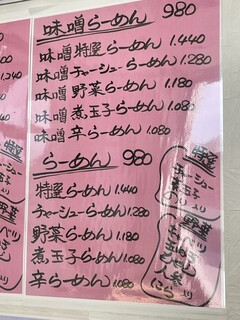 味噌らーめん 980
味噌特盛らーめん 1.440
味噌チャーシューらーめん 1.280
味噌野菜らーめん 1.180
味噌煮玉子らーめん 1.080
味噌辛らーめん 1.080
らーめん 980
特盛らーめん 1.440
チャーシューらーめん 1.280
野菜らーめん 1.180
煮玉子らーめん 1.080
辛らーめん 1.080
特盛
チャーシュー
煮玉子
のり 入り
野菜
キャベツ
もやし
玉ねぎ
人参
にら 入り